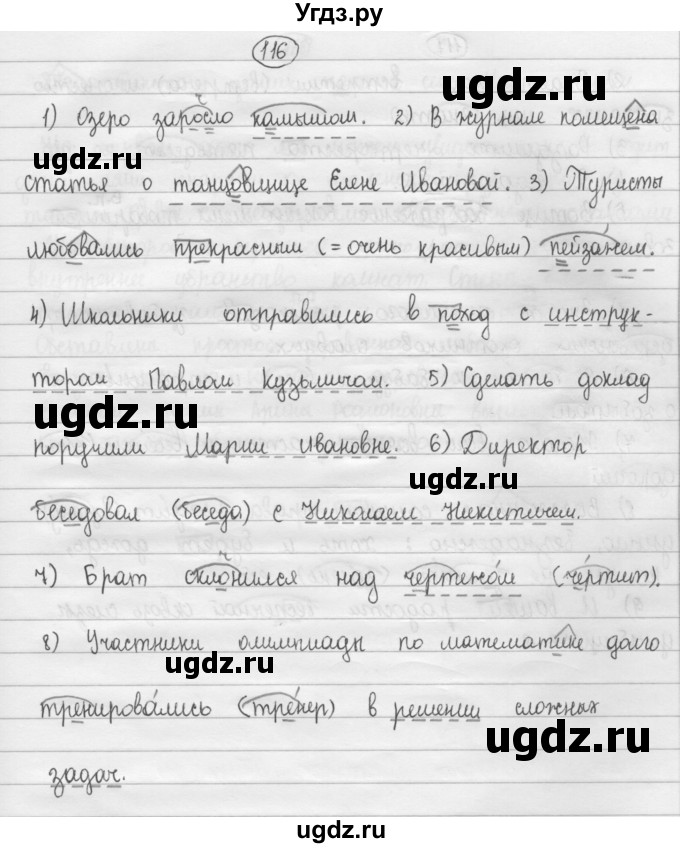 Угдз.ру
116
1) Озеро заросло камышом. 2) В журнале помещена
ugdz.ru
статья о танцовщице Елене Ивановой. 3) Туристы
любовались прекрасным (= очень красивым) пейзажем.
ugdz.ru
4) Школьники отправились в поход с инструк-
тором Павлом Кузьмичом. 5) Сделать доклад
ugdz.ru
ugdz.ru
поручили Марии Ивановне. 6) Директор
беседовал (беседа) с Николаем Никитичем.
ugdz.ru
7) Брат склонился над чертежом (чертит).
8) Участники олимпиады по математике долго
ugdz.ru
тренировались (тренер) в решении сложных
ugdz.ru
задач.
ugdz.ru
ugdz.ru